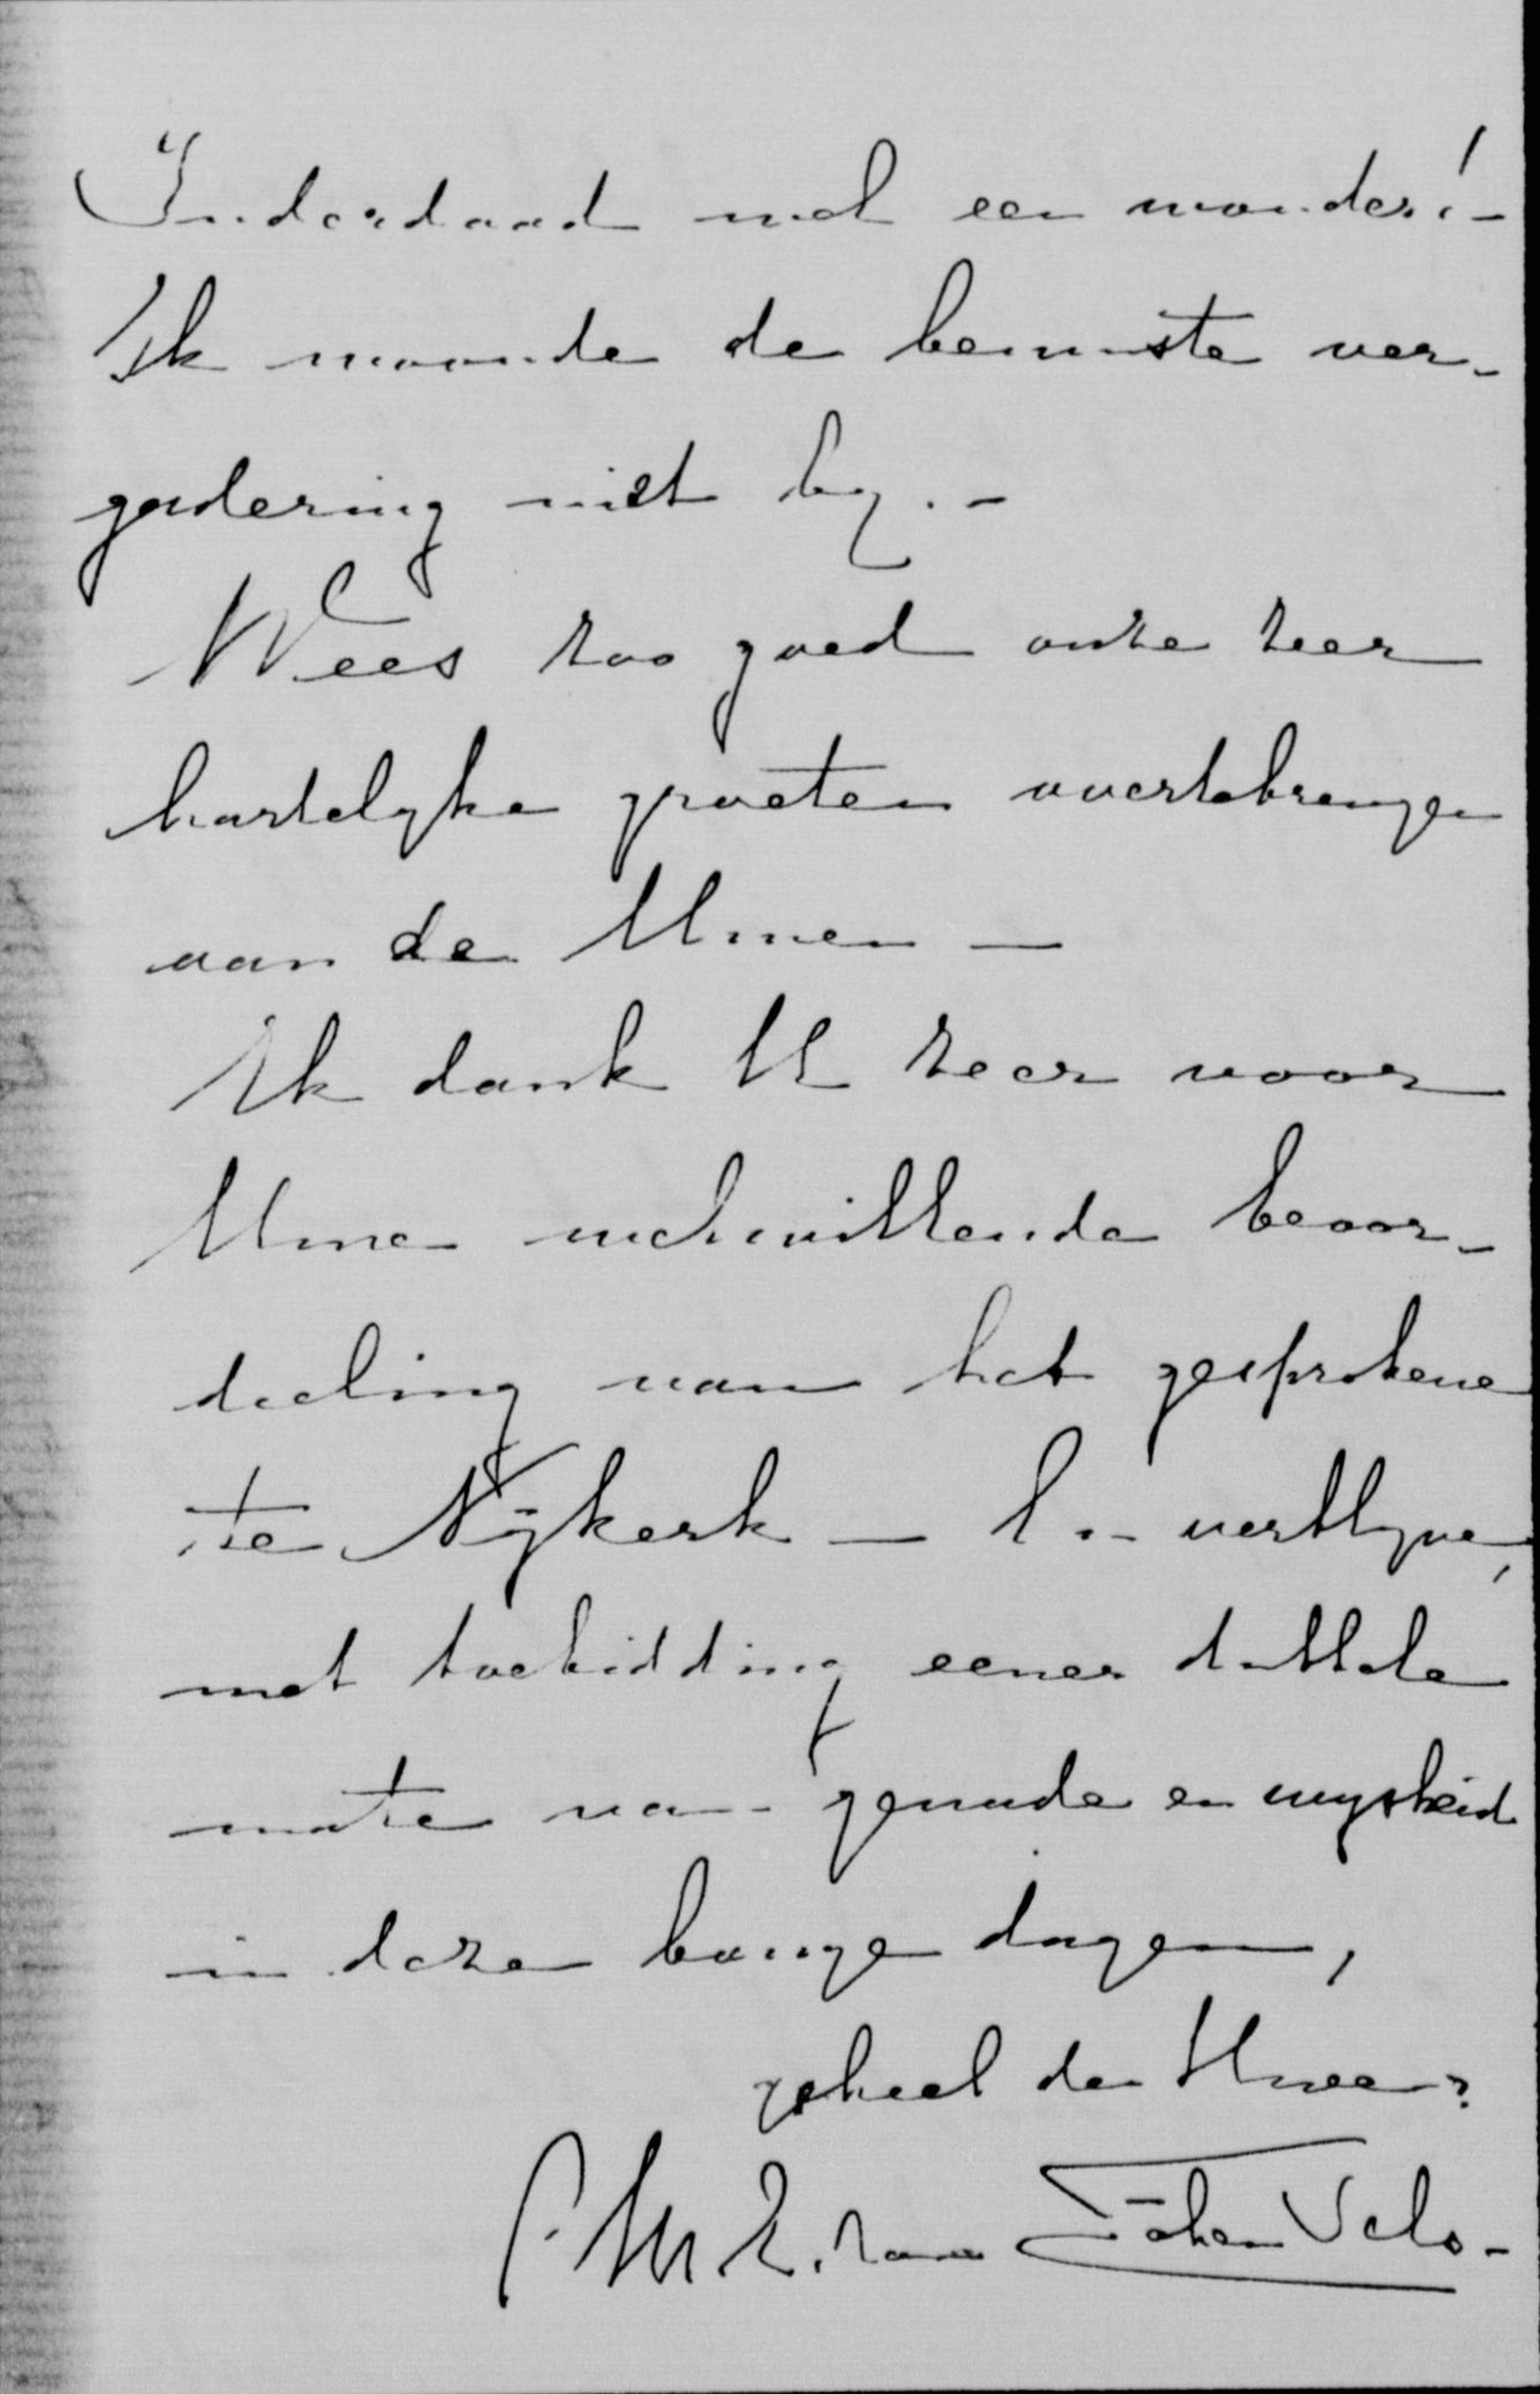 Inderdaad wel een wonder! -
Ik woonde de bewuste ver-
gadering niet by. -
Wees zoo goed onze zeer
hartelyke groeten overtebrengen
aan de Uwen —
Ik dank U zeer voor
Uwe welwillende beoor-
deeling van het gesprokene
te Nÿkerk — En verblyve,
met toebidding eener dubbele
mate van genade en wysheid
in deze bange dagen,
geheel de Uwe
van